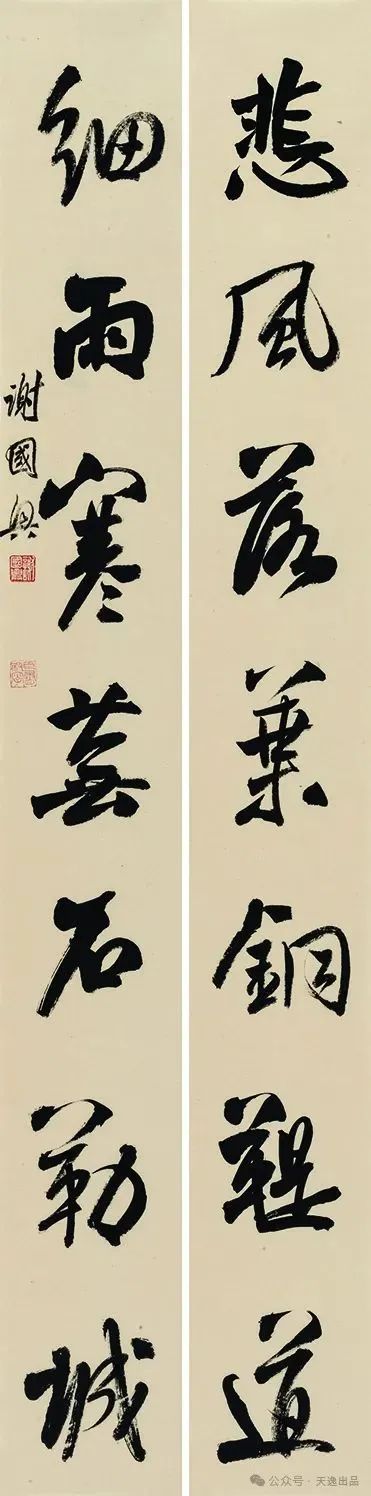 悲風落葉銅鞮道
細雨寒蕪石勒城
謝國興
公众号 · 天逸出品